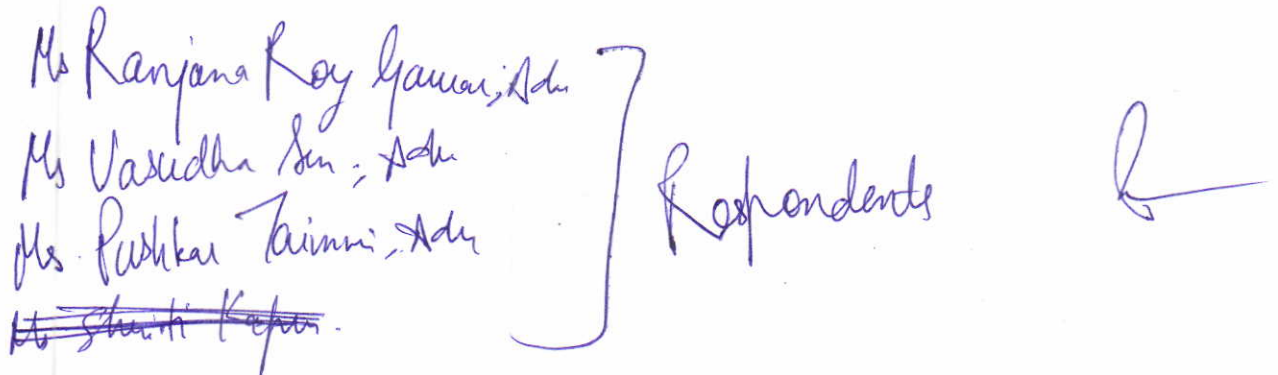 Ms Ranjana Roy Gawai, Adv
Ms Vasudha Sen, Adv
Ms. Pushkar Taimni, Adv
Respondents